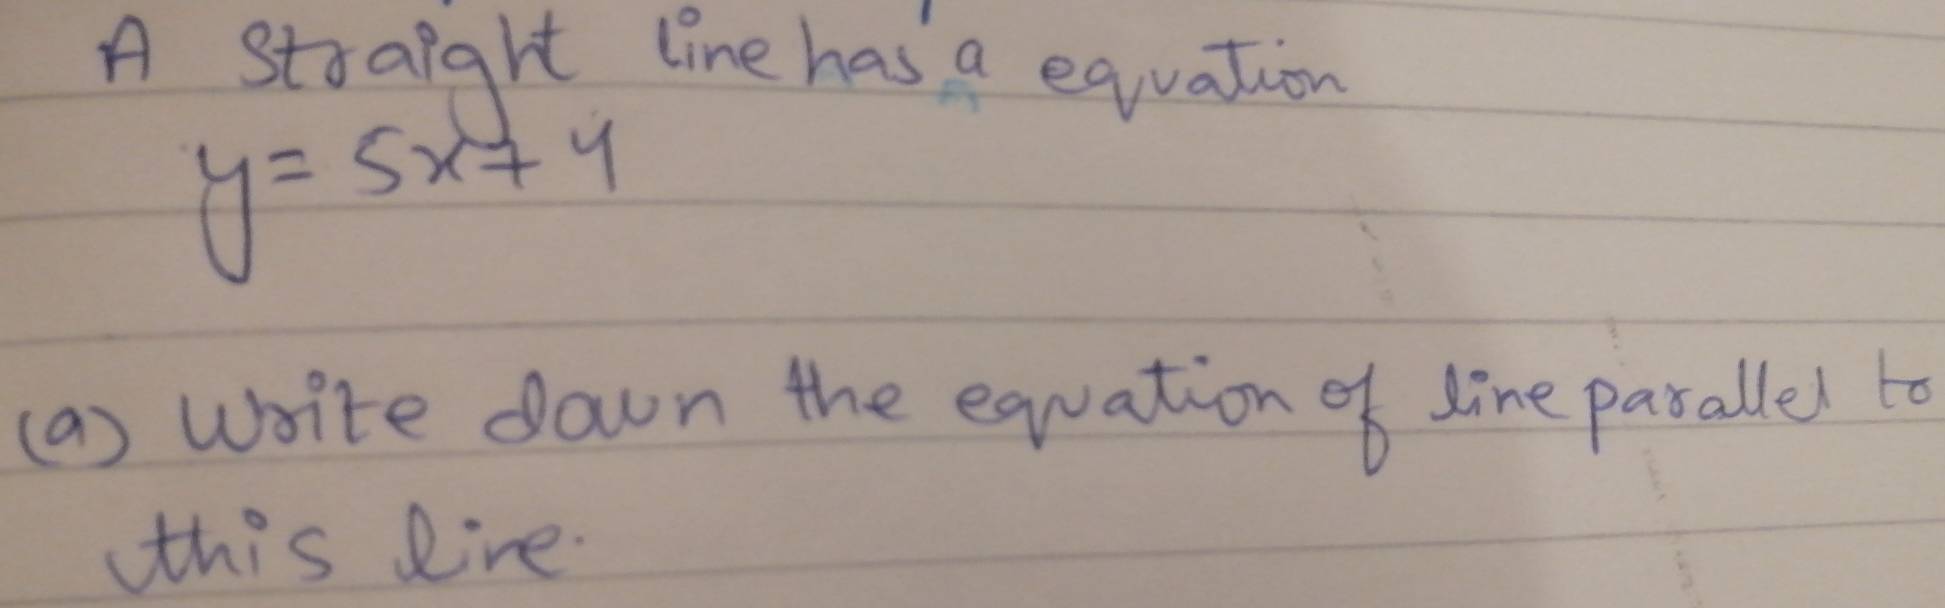 A straight line has a equation
y = 5x + 4
(a) Write down the equation of line parallel to
this line.